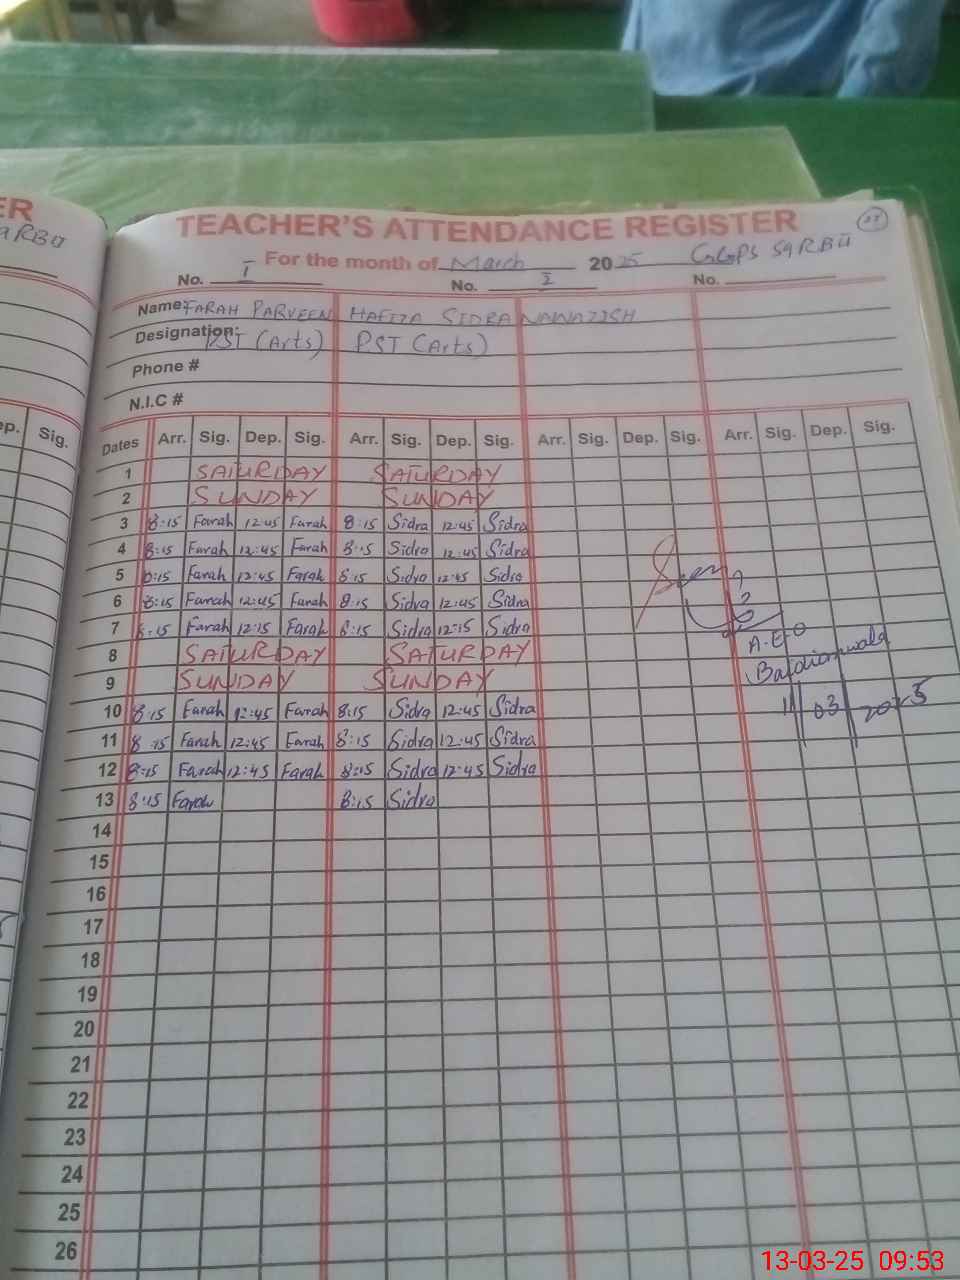 ER
TEACHER'S ATTENDANCE REGISTER
For the month of March 2025 GGPS 59RBII
No. I No. 2 No.
Name: FARAH PARVEEN HAFIZA SIDRA NAWAZISH
Designation: PST (Arts) PST (Arts)
Phone #
N.I.C #
ep. Sig.
Dates Arr. Sig. Dep. Sig. Arr. Sig. Dep. Sig. Arr. Sig. Dep. Sig. Arr. Sig. Dep. Sig.
1 SATURDAY SATURDAY
2 SUNDAY SUNDAY
3 8:15 Farah 12:45 Farah 8:15 Sidra 12:45 Sidra
4 8:15 Farah 12:45 Farah 8:15 Sidra 12:45 Sidra
5 8:15 Farah 12:45 Farah 8:15 Sidra 12:45 Sidra
6 8:15 Farah 12:45 Farah 8:15 Sidra 12:45 Sidra
7 8:15 Farah 12:15 Farah 8:15 Sidra 12:15 Sidra
8 SATURDAY SATURDAY
9 SUNDAY SUNDAY
10 8:15 Farah 12:45 Farah 8:15 Sidra 12:45 Sidra
11 8:15 Farah 12:45 Farah 8:15 Sidra 12:45 Sidra
12 8:15 Farah 12:45 Farah 8:15 Sidra 12:45 Sidra
13 8:15 Farah 8:15 Sidra
Seen
A.E.O
11/03/2025
14
15
16
17
18
19
20
21
22
23
24
25
26
13-03-25 09:53